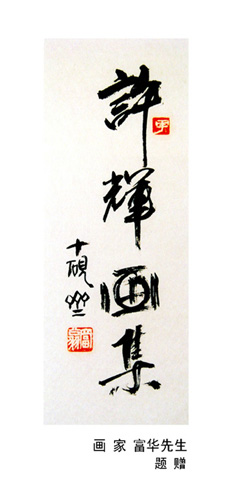 許輝画集
十硯
画 家 富华先生
题 赠